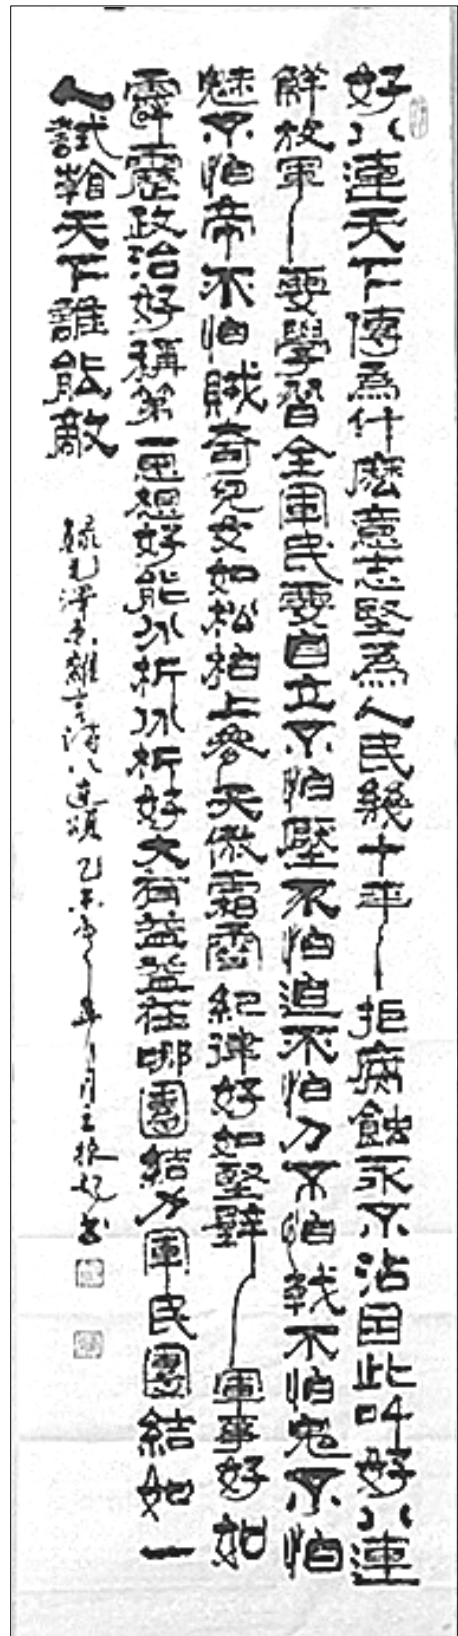 好八連天下傳為什麼意志堅為人民幾十年拒腐蝕永不沾因此叫好八連
解放軍要學習全軍民要自立不怕壓不怕迫不怕刀不怕戟不怕鬼不怕
魅不怕帝不怕賊奇兒女如松柏上參天傲霜雪紀律好如堅壁軍事好如
霹靂政治好稱第一思想好能分析分析好大有益益在哪團結力軍民團結如一
人試看天下誰能敵
錄毛澤東雜言詩八連頌乙未年